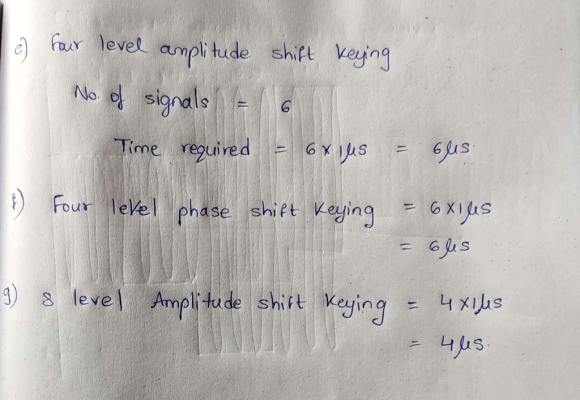 e) Four level amplitude shift keying
No. of signals = 6
Time required = 6 x 1μs = 6μs.
f) Four level phase shift keying = 6 x 1μs
= 6μs
g) 8 level Amplitude shift keying = 4 x 1μs
= 4μs.